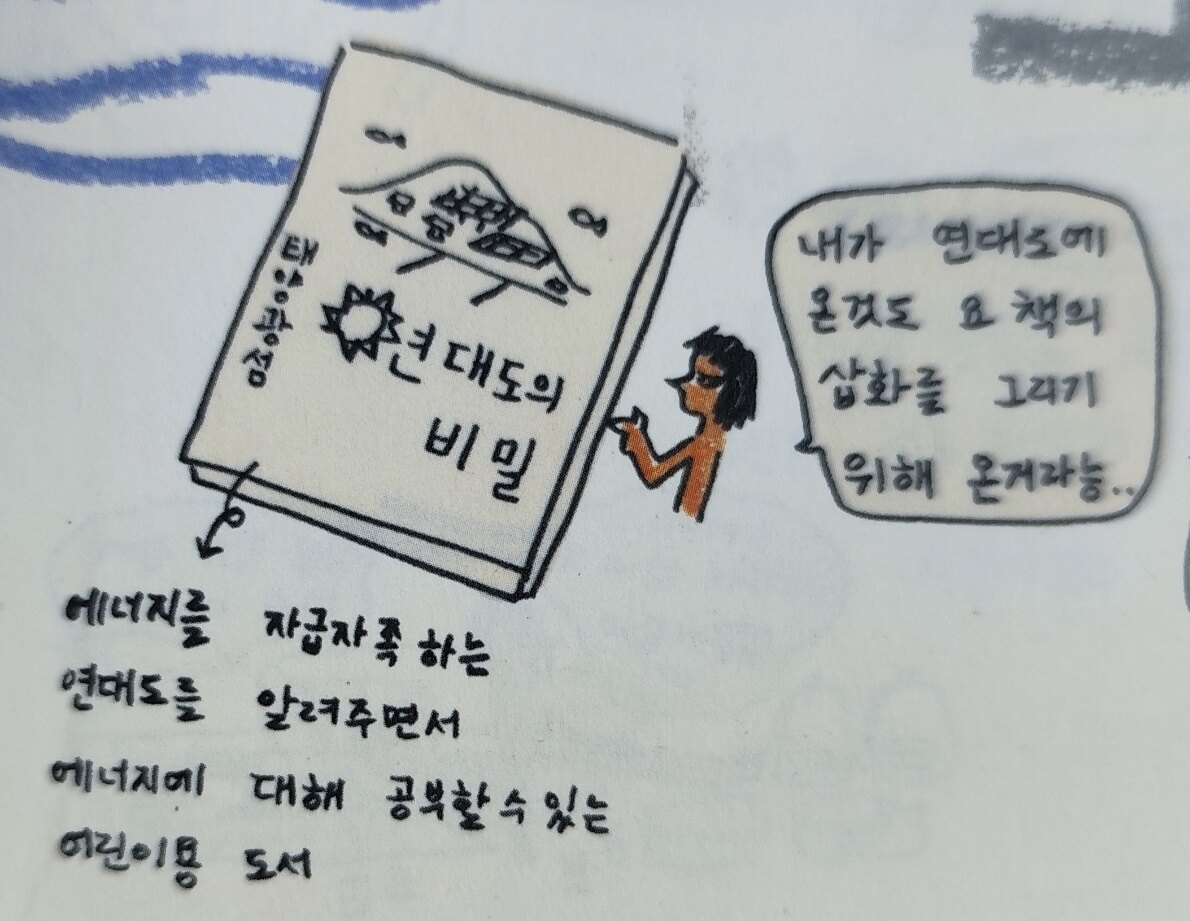 태양광섬
연대도의
비밀
내가 연대도에
온것도 요 책의
삽화를 그리기
위해 온거라능..
에너지를 자급자족 하는
연대도를 알려주면서
에너지에 대해 공부할 수 있는
어린이용 도서